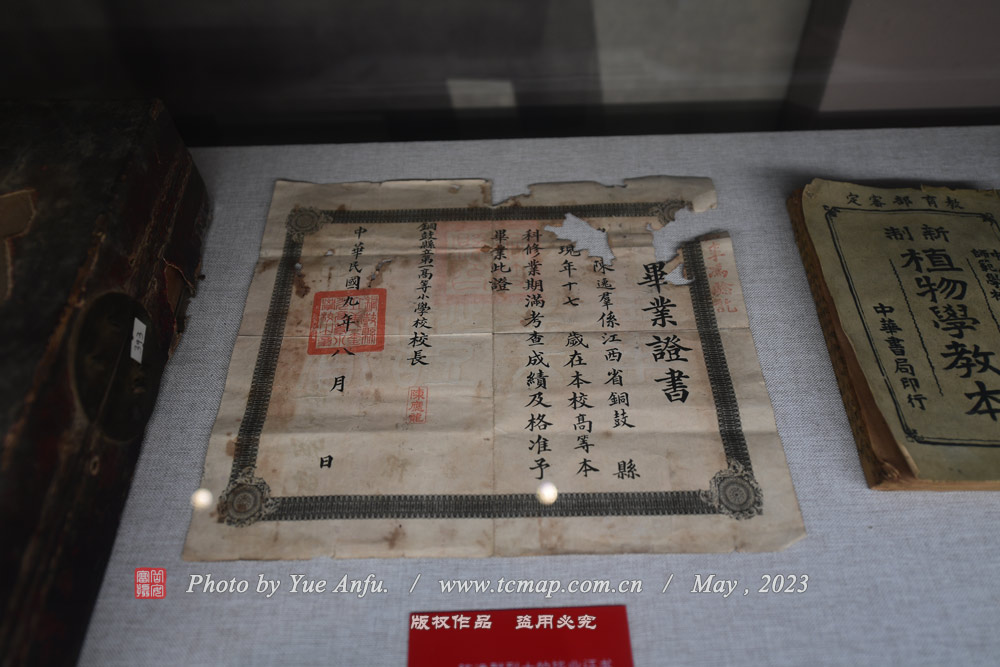 畢業證書
陳逺羣係江西省銅鼓縣
現年十七歲在本校高等本
科修業期滿考查成績及格准予
畢業此證
銅鼓縣立第一高等小學校校長
中華民國九年八月日
教育部審定
新制
植物學教本
中華書局印行
Photo by Yue Anfu. / www.tcmap.com.cn / May , 2023
版权作品 盗用必究